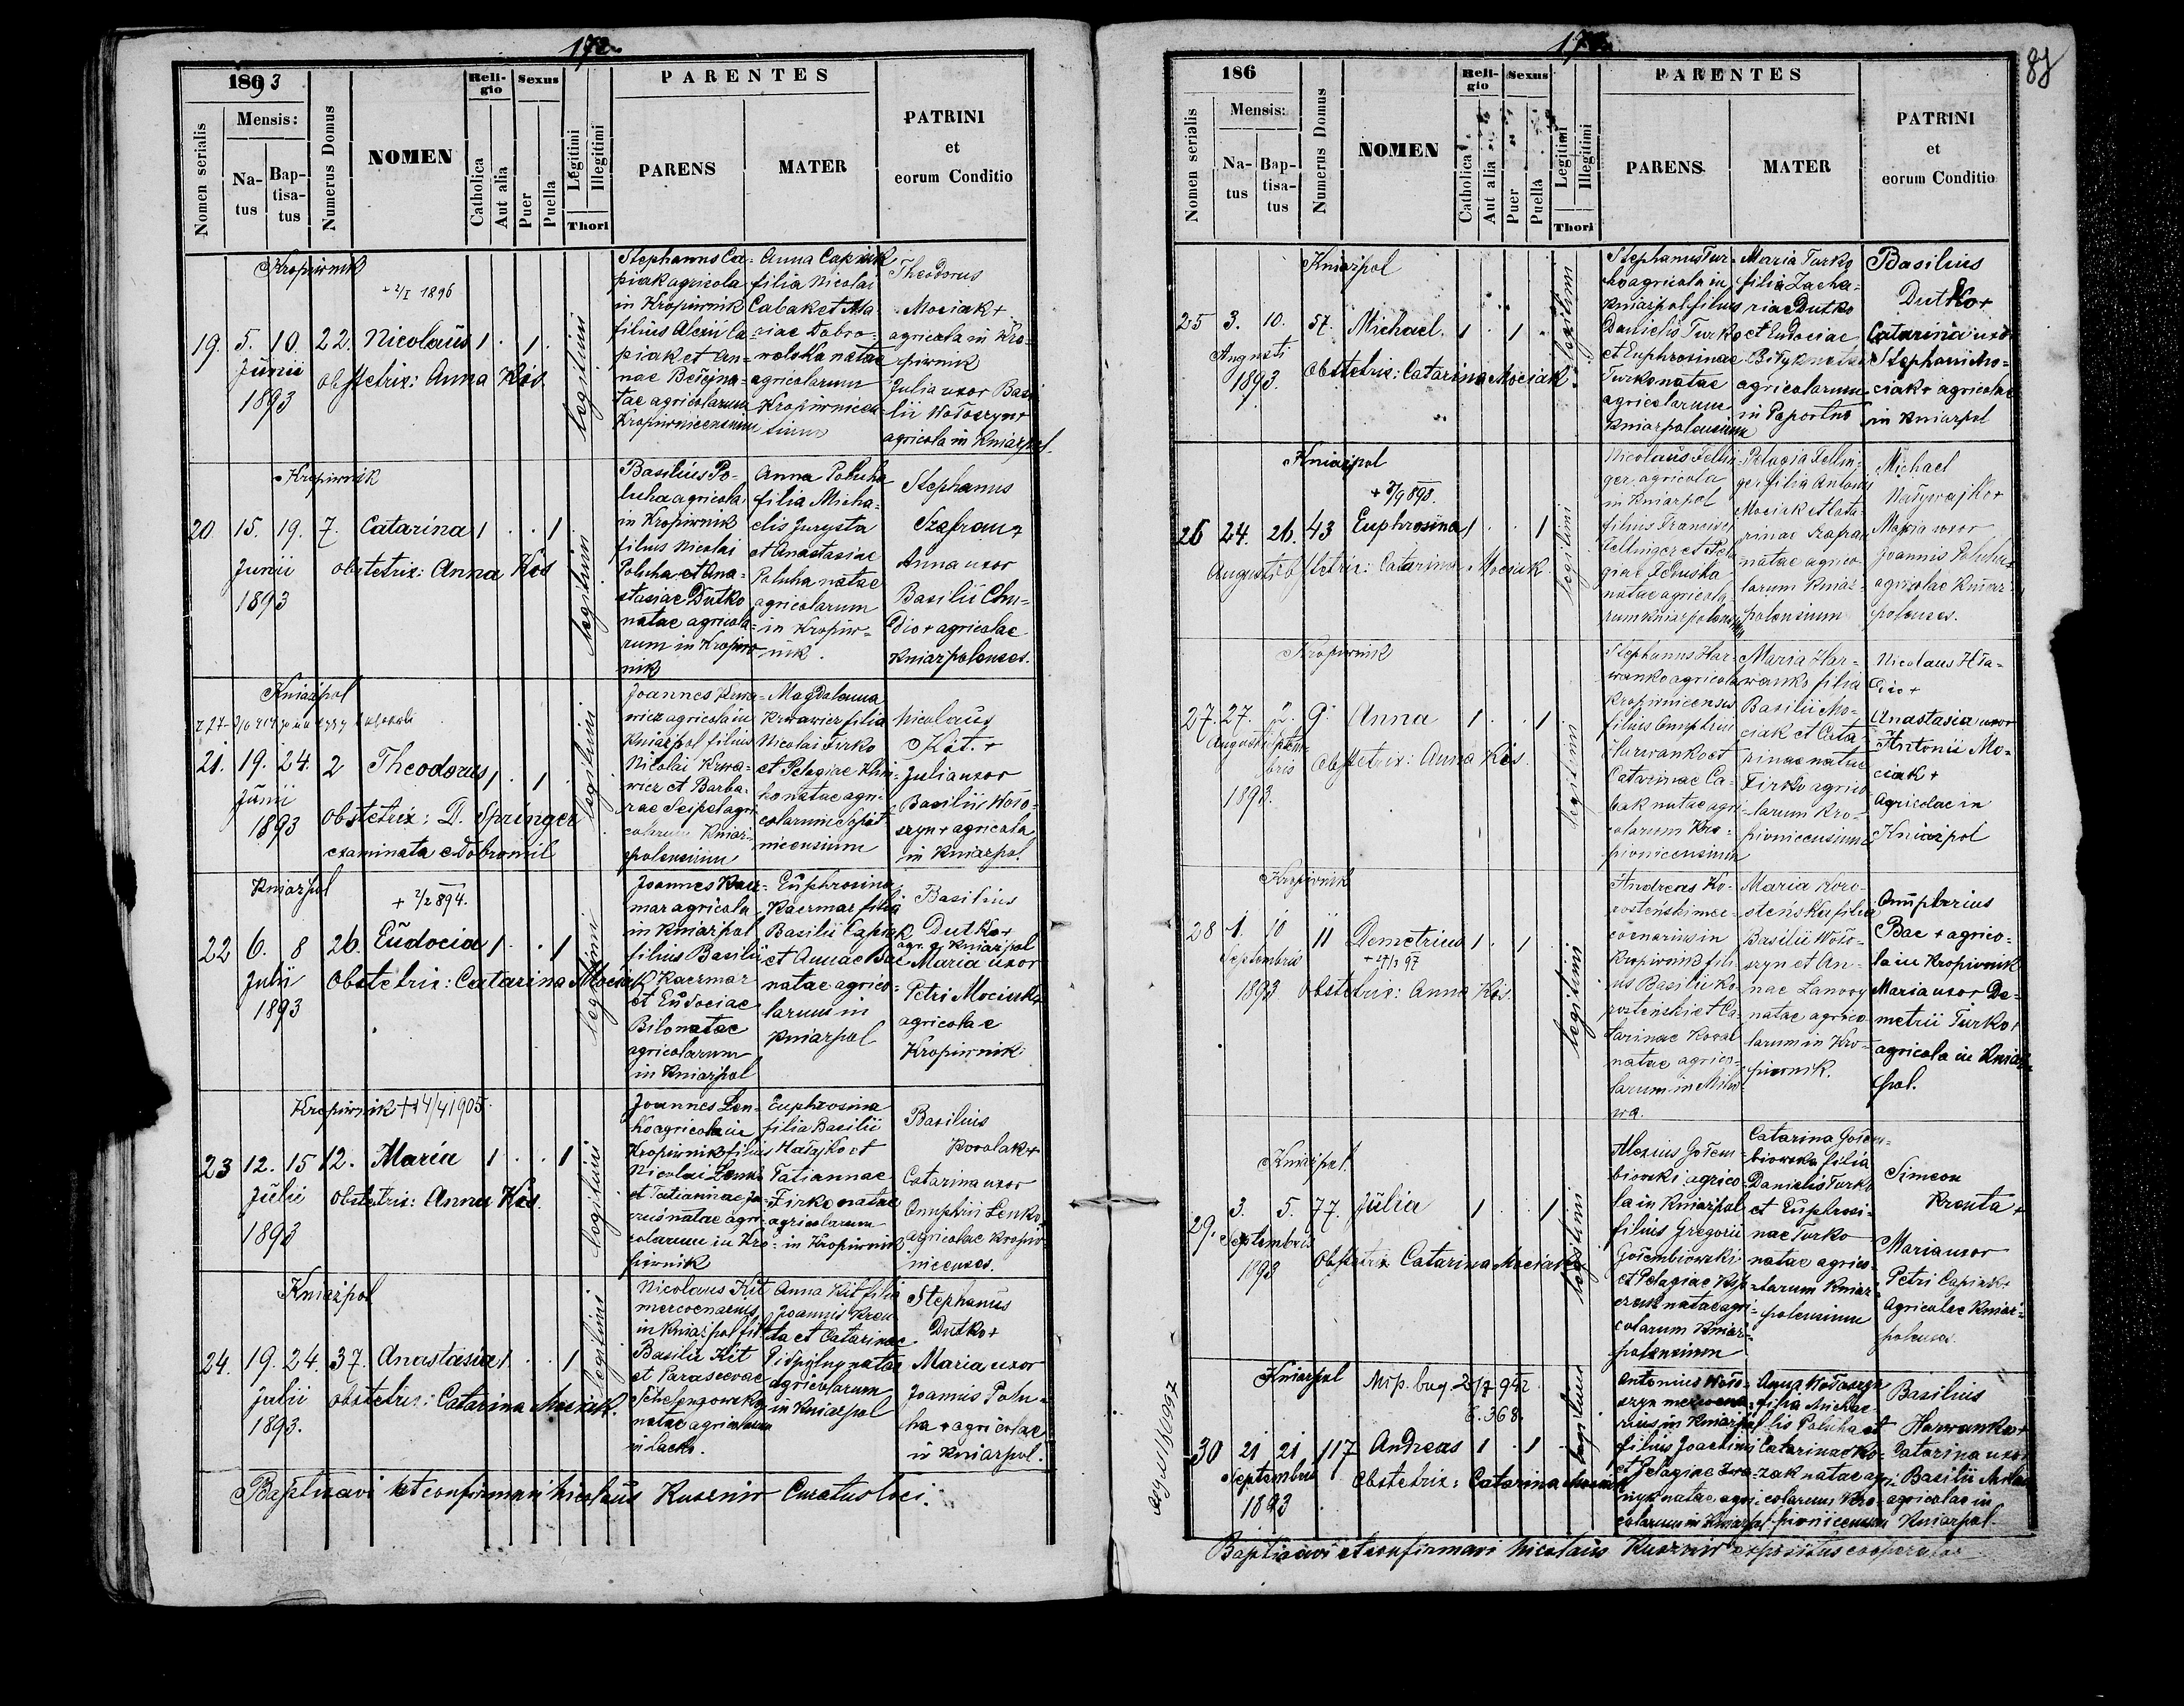 172
1893
Nomen serialis
Mensis:
Na-
tus
Bap-
tisa-
tus
Numerus Domus
NOMEN
Reli-
gio
Catholica
Aut alia
Sexus
Puer
Puella
Legitimi
Illegitimi
Thori
PARENTES
PARENS
MATER
PATRINI
et
eorum Conditio
Kropiwnik
+ 2/I 1896
19. 5. 10. 22. Nicolaus 1 . 1 .
Junii
1893
obstetrix: Anna Kós
legitimi
Stephanus Ca-
piak agricola
in Kropiwnik
filius Alexii Ca-
piak et An-
nae
tae agricolarum
Kropiwnicensium
Anna Capiak
filia Nicolai
Cabak et Ma
riae Dobro-
wolska natae
agricolarum
Kropiwnicen
sium
Theodorus
Mociak +
agricola in Kro-
piwnik
Julia uxor Basi
lii Wołoszyn +
agricola in Kniażpol.
Kropiwnik
20. 15. 19. 7. Catarina 1 . . 1
Junii
1893
obstetrix: Anna Kós
legitimi
Basilius Po-
luha agricola
in Kropiwnik
filius Nicolai
Poluha et Ana-
stasiae Dutko
natae agricola-
rum in Kropiw
nik
Anna Poluha
filia Micha-
elis Jurysta
et Anastasiae
Poluha natae
agricolarum
in Kropiw-
nik.
Stephanus
Szafran +
Anna uxor
Basilii Chu-
dio + agricolae
Kniażpolenses.
Kniażpol
21. 19. 24. 2 Theodorus 1 . 1 .
Junii
1893
obstetrix: D. Springer
examinata e Dobromil
legitimi
Joannes Krwa-
wicz agricola in
Kniażpol filius
Nicolai Krwa-
wicz et Barba-
rae Seipel agri
colarum Kniaż-
polensium
Magdalena
Krwawicz filia
Nicolai Firko
et Pelagiae
natae agri-
colarum
nicensium
Nicolaus
Kit. +
Julia uxor
Basilii Woło-
szyn + agricola
in Kniażpol.
Kniażpol
+ 2/2 894.
22 6. 8 26. Eudocia 1 . . 1
Julii
1893
obstetrix: Catarina Mociak
legitimi
Joannes Kacz-
mar agricola
in Kniażpol
filius Basilii
Kaczmar
et Eudociae
Bilo natae
agricolarum
in Kniażpol
Euphrosina
Kaczmar filia
Basilii Capiak
et Annae Bac
natae agrico-
larum in
Kniażpol
Basilius
Dutko +
agr. q. Kniażpol
Maria uxor
Petri Mociak +
agricolae
Kropiwnik
Kropiwnik ++ 4/4 1905.
23 12. 15 12. Maria 1 . . 1
Julii
1893
obstetrix: Anna Kós.
legitimi
Joannes Len-
ko agricola in
Kropiwnik filius
Nicolai Lenko
et Tatiannae
natae agri-
colarum in Kro-
piwnik
Euphrosina
filia Basilii
Hałajko et
Tatiannae
Firko natae
agricolarum
in Kropiwnik
Basilius
Kowalak +
Catarina uxor
Onuphrii Lenko
agricolae Kropiw
nicenses.
Kniażpol
24. 19. 24. 37. Anastasia 1 . . 1
Julii
1893.
obstetrix: Catarina Mociak.
legitimi
Nicolaus Kit
mercenarius
in Kniażpol fil.
Basilii Kit
et Parascevae
natae agricolarum
in Lacko.
Anna Kit filia
Joannis Kreu
ta et Catarinae
natae
agricolarum
in Kniażpol
Stephanus
Dutko +
Maria uxor
Joannis Polu-
ha + agricolae
in Kniażpol.
Baptisavi et confirmavi Nicolaus Kusznir Curatus loci.
87
186
Nomen serialis
Mensis:
Na-
tus
Bap-
tisa-
tus
Numerus Domus
NOMEN
Reli-
gio
Catholica
Aut alia
Sexus
Puer
Puella
Legitimi
Illegitimi
Thori
PARENTES
PARENS
MATER
PATRINI
et
eorum Conditio
Kniażpol
25 3. 10. 57. Michael 1 . 1 .
Augusti
1893.
Obstetrix: Catarina Mociak.
legitimi
Stephanus Tur-
ko agricola in
Kniażpol filius
Danielis Turko
et Euphrosinae
Turko natae
agricolarum
Kniażpolensium
Maria Turko
filia Zacha-
riae Dutko
et Eudociae
natae
agricolarum
in Paportno
Basilius
Dutko +
Catarina uxor
Stephani Mo-
ciak + agricolae
in Kniażpol
Kniażpol
+ 7/9 898.
26 24. 26. 43 Euphrosina 1 . . 1
Augusti
Obstetrix: Catarina Mociak
legitimi
Nicolaus Fellin-
ger agricola
in Kniażpol
filius Francisci
Fellinger et Pela
giae
natae agricola
rum Kniażpolensium
Pelagia Fellin-
ger filia Antonii
Mociak et Cata-
rinae Szafran
natae agrico-
larum Kniaż-
polensium
Michael
Nalywajko +
Maria uxor
Joannis Poluha +
agricolae Kniaż-
polenses.
Kropiwnik
27. 27. 9. Anna 1 . . 1
Augusti
bris
1893.
Obstetrix: Anna Kós.
legitimi
Stephanus Har-
wanko agricola
Kropiwnicensis
filius Onuphrii
Harwanko et
Catarinae Ca-
bak natae agri-
colarum Kro-
piwnicensium
Maria Har-
wanko filia
Basilii Mo-
ciak et Cata-
rinae natae
Firko agrico
larum Kro-
piwnicensium
Nicolaus
+
Anastasia uxor
Antonii Mo-
ciak +
Agricolae in
Kniażpol
Kropiwnik
28 1. 10 11 Demetrius 1 . 1 .
+ 27/3 97
Septembris
1893
Obstetrix: Anna Kós.
legitimi
Andreas Ko-
rosteński mer-
cenarius in
Kropiwnik fili-
us Basilii Ko-
rosteński et Ca-
tarinae Kowal
natae agrico-
larum in
Maria Koro-
steńska filia
Basilii Woło-
szyn et An-
nae
natae agrico
larum in Kro-
piwnik.
Onuphrius
Bac + agrico-
la in Kropiwnik
Maria uxor De-
metrii Turko +
agricola in Kniaż
pol.
Kniażpol.
29. 3. 5. 77. Julia 1 . . 1
Septembris
1893
Obstetrix Catarina Mociak
legitimi
Alexius Gołem-
biowski agrico-
la in Kniażpol
filius Gregorii
Gołembiowski
et Pelagiae
natae agri-
colarum Kniaż-
polensium
Catarina Gołem-
biowska filia
Danielis Turko
et Euphrosi-
nae Turko
natae agrico-
larum Kniaż-
polensium
Simeon
Kreuta +
Maria uxor
Petri Capiak +
Agricolae Kniaż-
polenses.
Kniażpol
2/7 942
368.
30 21 21 117 Andreas 1 . 1 .
Septembris
1893
Obstetrix: Catarina Mociak
legitimi
Antonius Woło-
szyn mercena-
rius in Kniażpol
filius Joachimi
et Pelagiae
natae agri-
colarum in Kniażpol
Anna Wołoszyn
filia Michae
lis Poluha et
Catarinae Ko-
zak natae agri-
colarum Kro-
piwnicensium
Basilius
Harwanko +
Catarina uxor
Basilii
agricolae in
Kniażpol.
Baptisavi et confirmavi Nicolaus Kusznir expositus cooperator